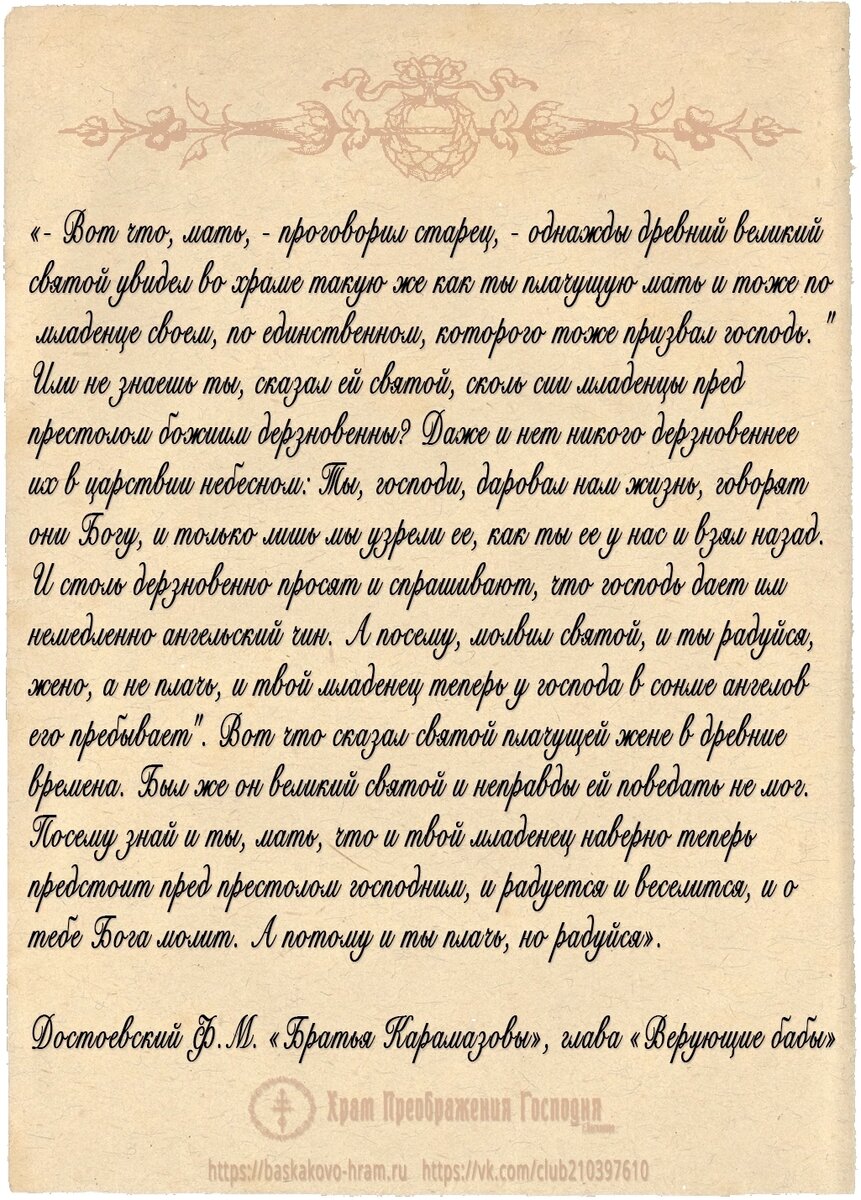 «- Вот что, мать, - проговорил старец, - однажды древний великий
святой увидел во храме такую же как ты плачущую мать и тоже по
младенце своем, по единственном, которого тоже призвал господь. "
Или не знаешь ты, сказал ей святой, сколь сии младенцы пред
престолом божиим дерзновенны? Даже и нет никого дерзновеннее
их в царствии небесном: Ты, господи, даровал нам жизнь, говорят
они Богу, и только лишь мы узрели ее, как ты ее у нас и взял назад.
И столь дерзновенно просят и спрашивают, что господь дает им
немедленно ангельский чин. А посему, молвил святой, и ты радуйся,
жено, а не плачь, и твой младенец теперь у господа в сонме ангелов
его пребывает". Вот что сказал святой плачущей жене в древние
времена. Был же он великий святой и неправды ей поведать не мог.
Посему знай и ты, мать, что и твой младенец наверно теперь
предстоит пред престолом господним, и радуется и веселится, и о
тебе Бога молит. А потому и ты плачь, но радуйся».
Достоевский Ф.М. «Братья Карамазовы», глава «Верующие бабы»
Храм Преображения Господня
https://baskakovo-hram.ru https://vk.com/club210397610